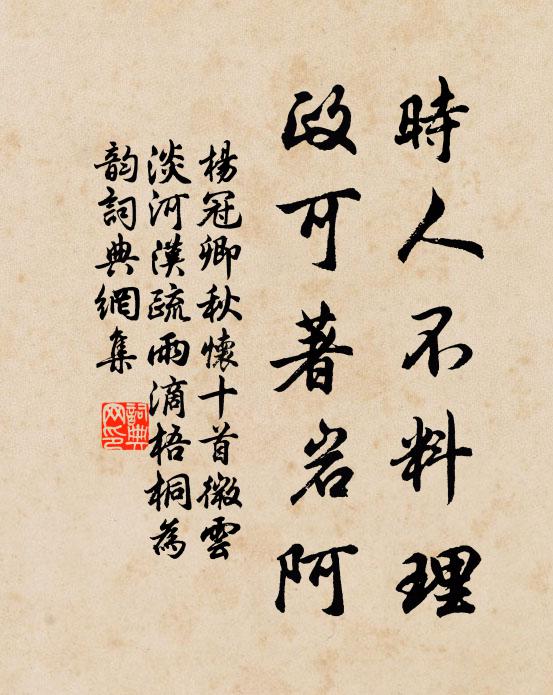 時人不料理
政可著岩阿
楊冠卿秋懷十首微雲
淡河漢疏雨滴梧桐為
韵詞典網集
詞典網印